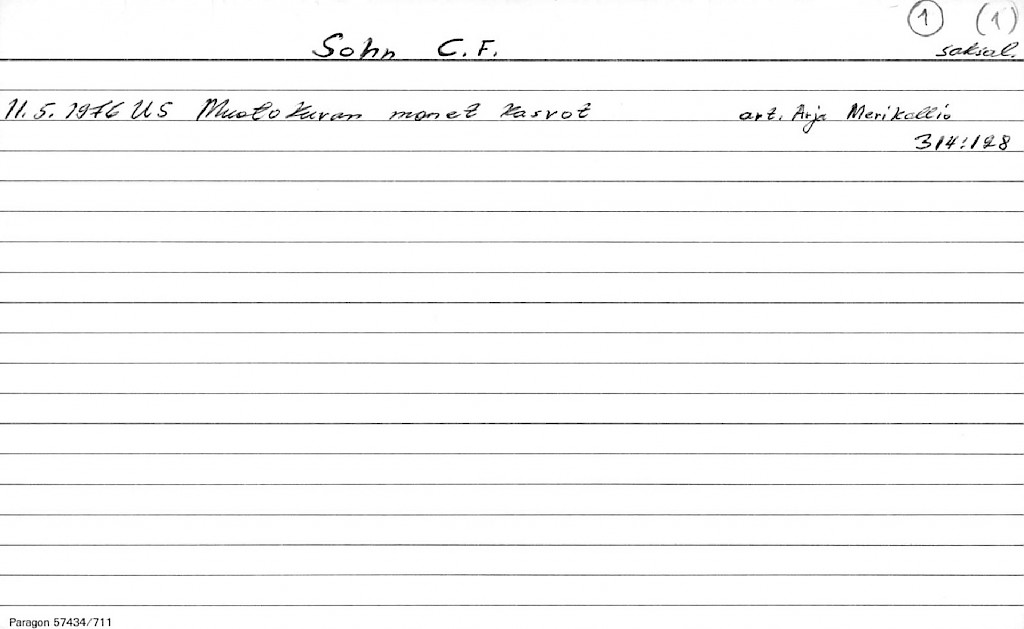 1 (1)
Sohn C.F. saksal.
11.5.1976 US Muotokuvan monet kasvot art. Arja Merikallio
314:128
Paragon 57434/711